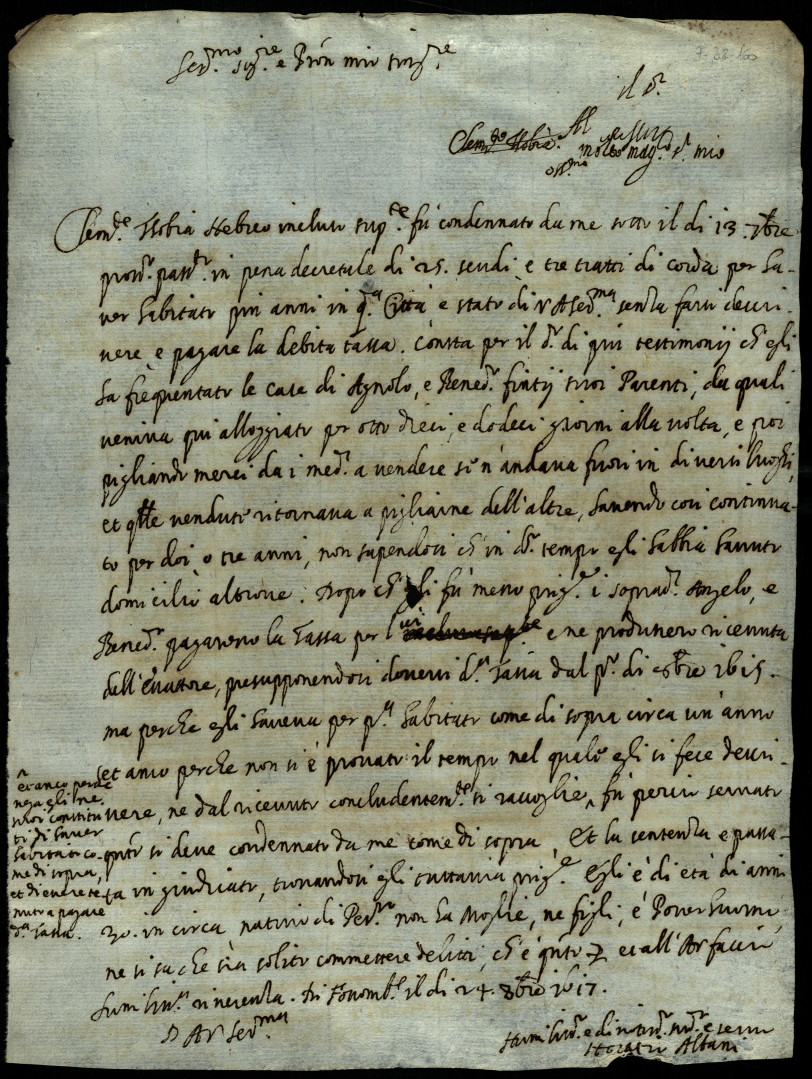 Ser.mo Sig.re e Pron mio sing.re
il S.r
Al
molto mag.co s.r mio
oss.mo
Clem.te Tobia Hebreo incluso sup.te fù condennato da me sotto il di 13 7bre
pross.o pass.to in pena decretale di 25. scudi e tre tratti di corda per ha-
ver habitato più anni in q.ta Città e stato di V A Ser.ma senza farsi descri-
vere e pagare la debita tassa. Consta per il d.o di più testimonij ch'egli
ha frequentato le case di Agnolo, e Bened.o suoi Parenti, da quali
veniva qui alloggiato per otto dieci, e dodeci giorni alla volta, e poi
pigliando merci da i med.i a vendere se n'andava fuori in diversi luoghi,
et q.lle vendute ritornava a pigliarne dell'altre, havendo così continua-
to per doi, o tre anni, non sapendosi ch'in d.o tempo egli habbia havuto
domicilio altrove. Dopo ch'egli fù messo prig.e i soprad.i Angelo, e
Bened.o pagarono la Tassa per lui e ne produssero ricevuta
dell'essattore, presupponendosi doversi d.a Tassa dal p.o di 8bre 1615.
ma perche egli haveva per p.a habitato come di sopra circa un'anno
et anco perche non si è provato il tempo nel quale egli si fece descri-
vere, ne dal ricevuto concludentem.te si raccoglie, fù perciò servato
q.nto si deve condennato da me come di sopra, Et la sentenza e passa-
ta in giudicato, trovandosi egli tuttavia prig.e. Egli è di età di anni
30. in circa nativo di non ha Moglie, ne figli, è Pover huomo
ne si sa che sia solito commettere delitti, ch'è q.nto et all' A V faccio
humiliss.a riverenza. Di il di 24. 8bre 1617.
et anco perche
nega gli ne
suoi constitu
ti di haver
habitato co-
me di sopra,
et di essere te-
nuto a pagare
d.a tassa.
D A V Ser.ma
Humiliss.o e divotiss.o e serv.e
Horatio Albani